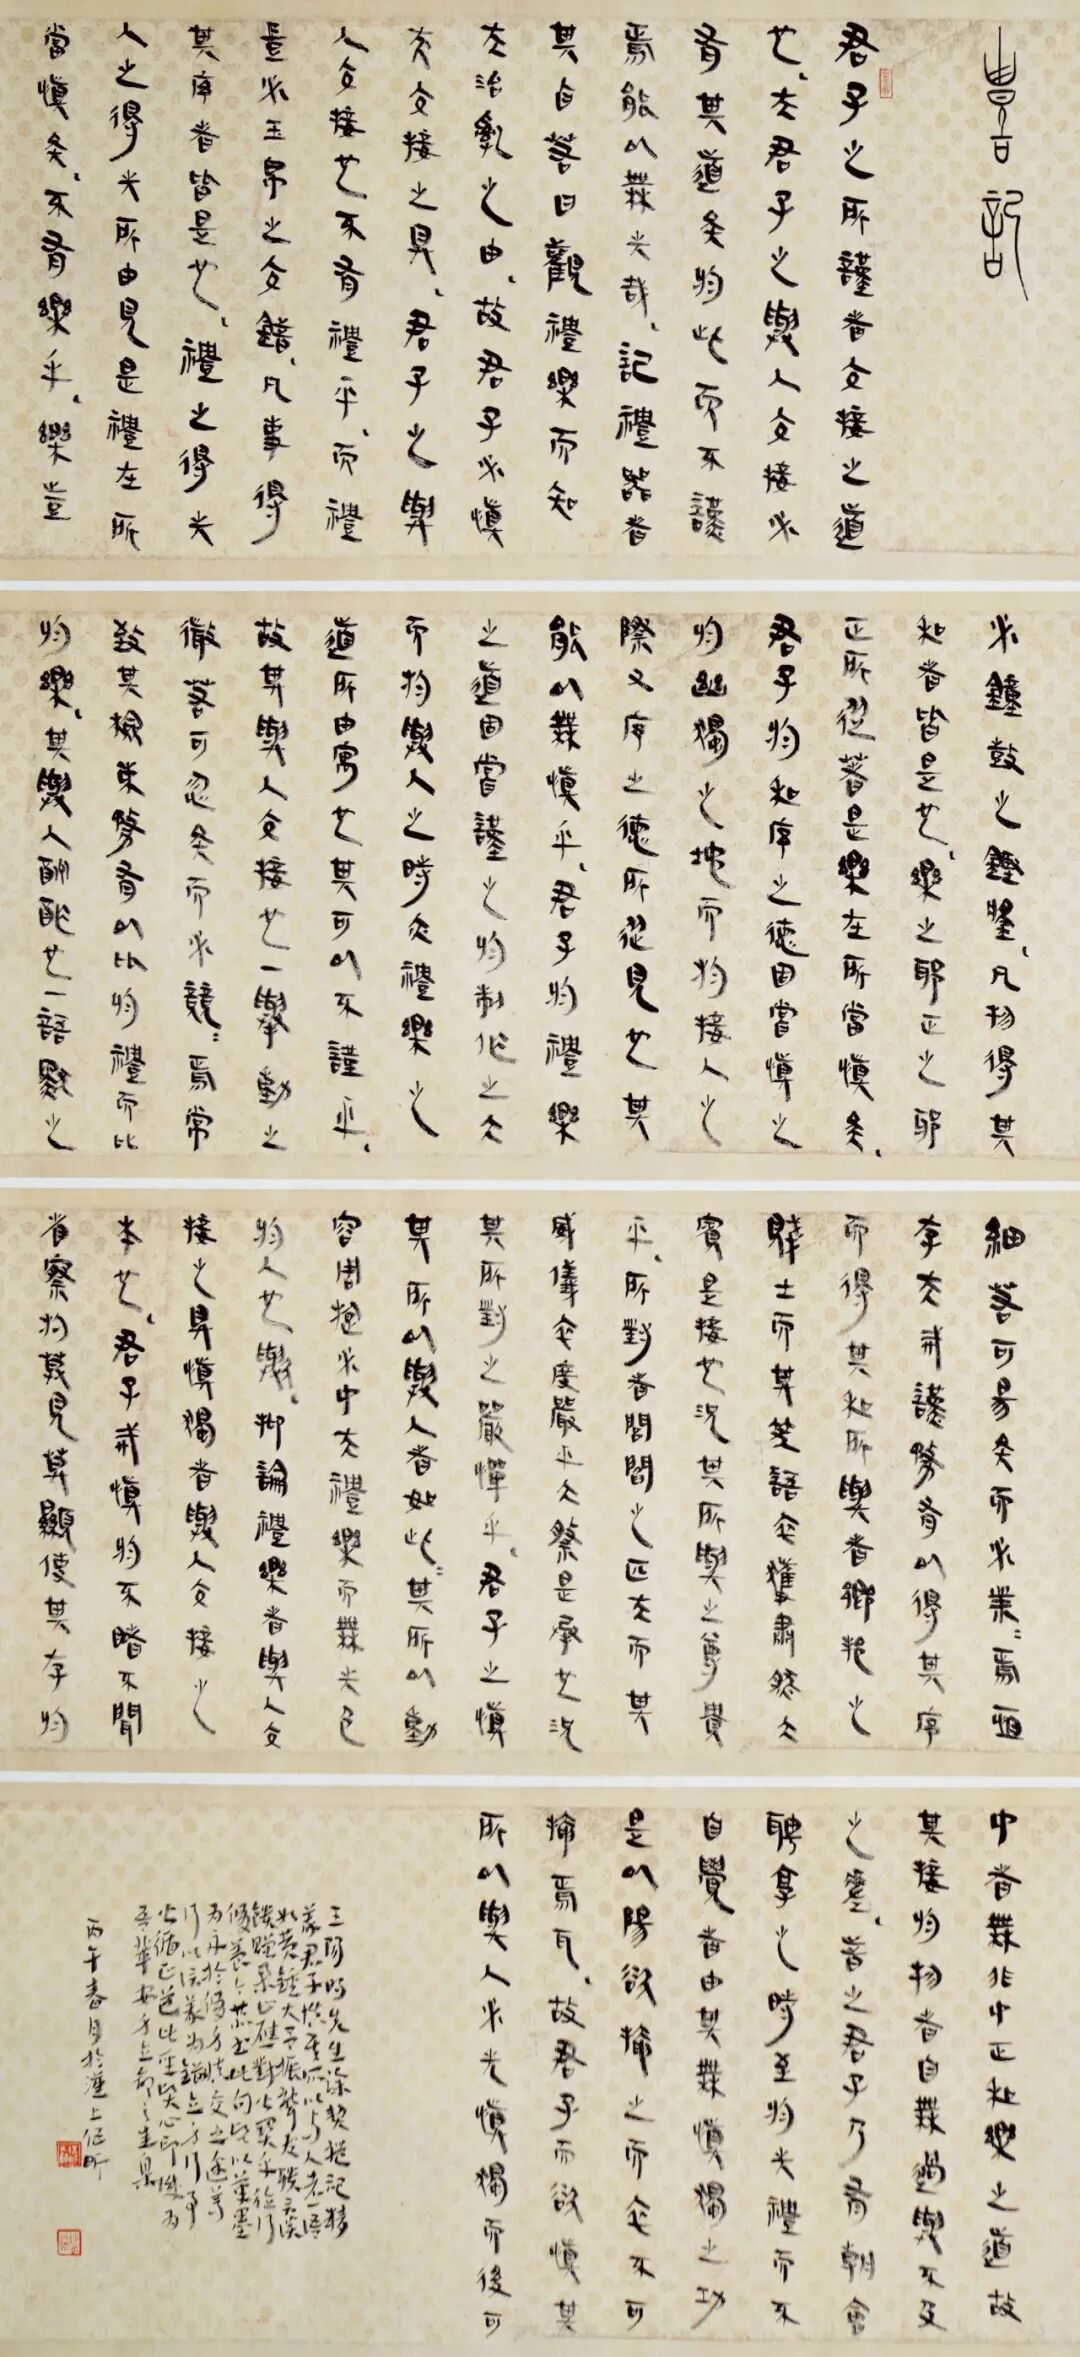 豊記
君子之所謹者交接之道
也夫君子之與人交接必
有其道矣於此而不謹
焉能以無失哉記禮器者
其自答曰觀禮樂而知
夫治亂之由故君子必慎
夫交接之具君子之與
人交接也不有禮乎而禮
豈必玉帛之交錯凡事得
其序者皆是也禮之得失
人之得失所由見是禮在所
當慎矣不有樂乎樂豈
必鐘鼓之鏗鏘凡物得其
和者皆是也樂之邪正之邪
正所從著是樂在所當慎矣
君子於和序之德固當慎之
於幽獨之地而於接人之
際又序之德所從見也其
能以無慎乎君子於禮樂
之道固嘗謹之於制作之大
而於與人之時夫禮樂之
道所由寓也其可以不謹乎
故其與人交接也一舉動之
微若可忽矣而必兢兢焉常
致其檢束務有以比於禮而比
於樂其與人酬酢也一語默之
細若可易矣而必業業焉恒
存夫戒謹務有以得其序
而得其和所與者鄉邦之
賤士而其笑語亦獲肅然大
賓是接也況其所與之尊貴
乎所對者閭閻之匹夫而其
威儀亦度嚴乎大祭是承也況
其所對之嚴憚乎君子之慎
其所以與人者如此其所以動
容周旋必中夫禮樂而無失已
於人也與抑論禮樂者與人交
接之具慎獨者與人交接之
本也君子戒慎於不睹不聞
省察於莫見莫顯使其存於
中者無非中正和樂之道故
其接於物者自無過與不及
之差昔之君子乃有朝會
聘享之時至於失禮而不
自覺者由其無慎獨之功
是以陽欲掩之而卒不可
掩焉耳故君子而欲慎其
所以與人必先慎獨而後可
丙午春月於滬上